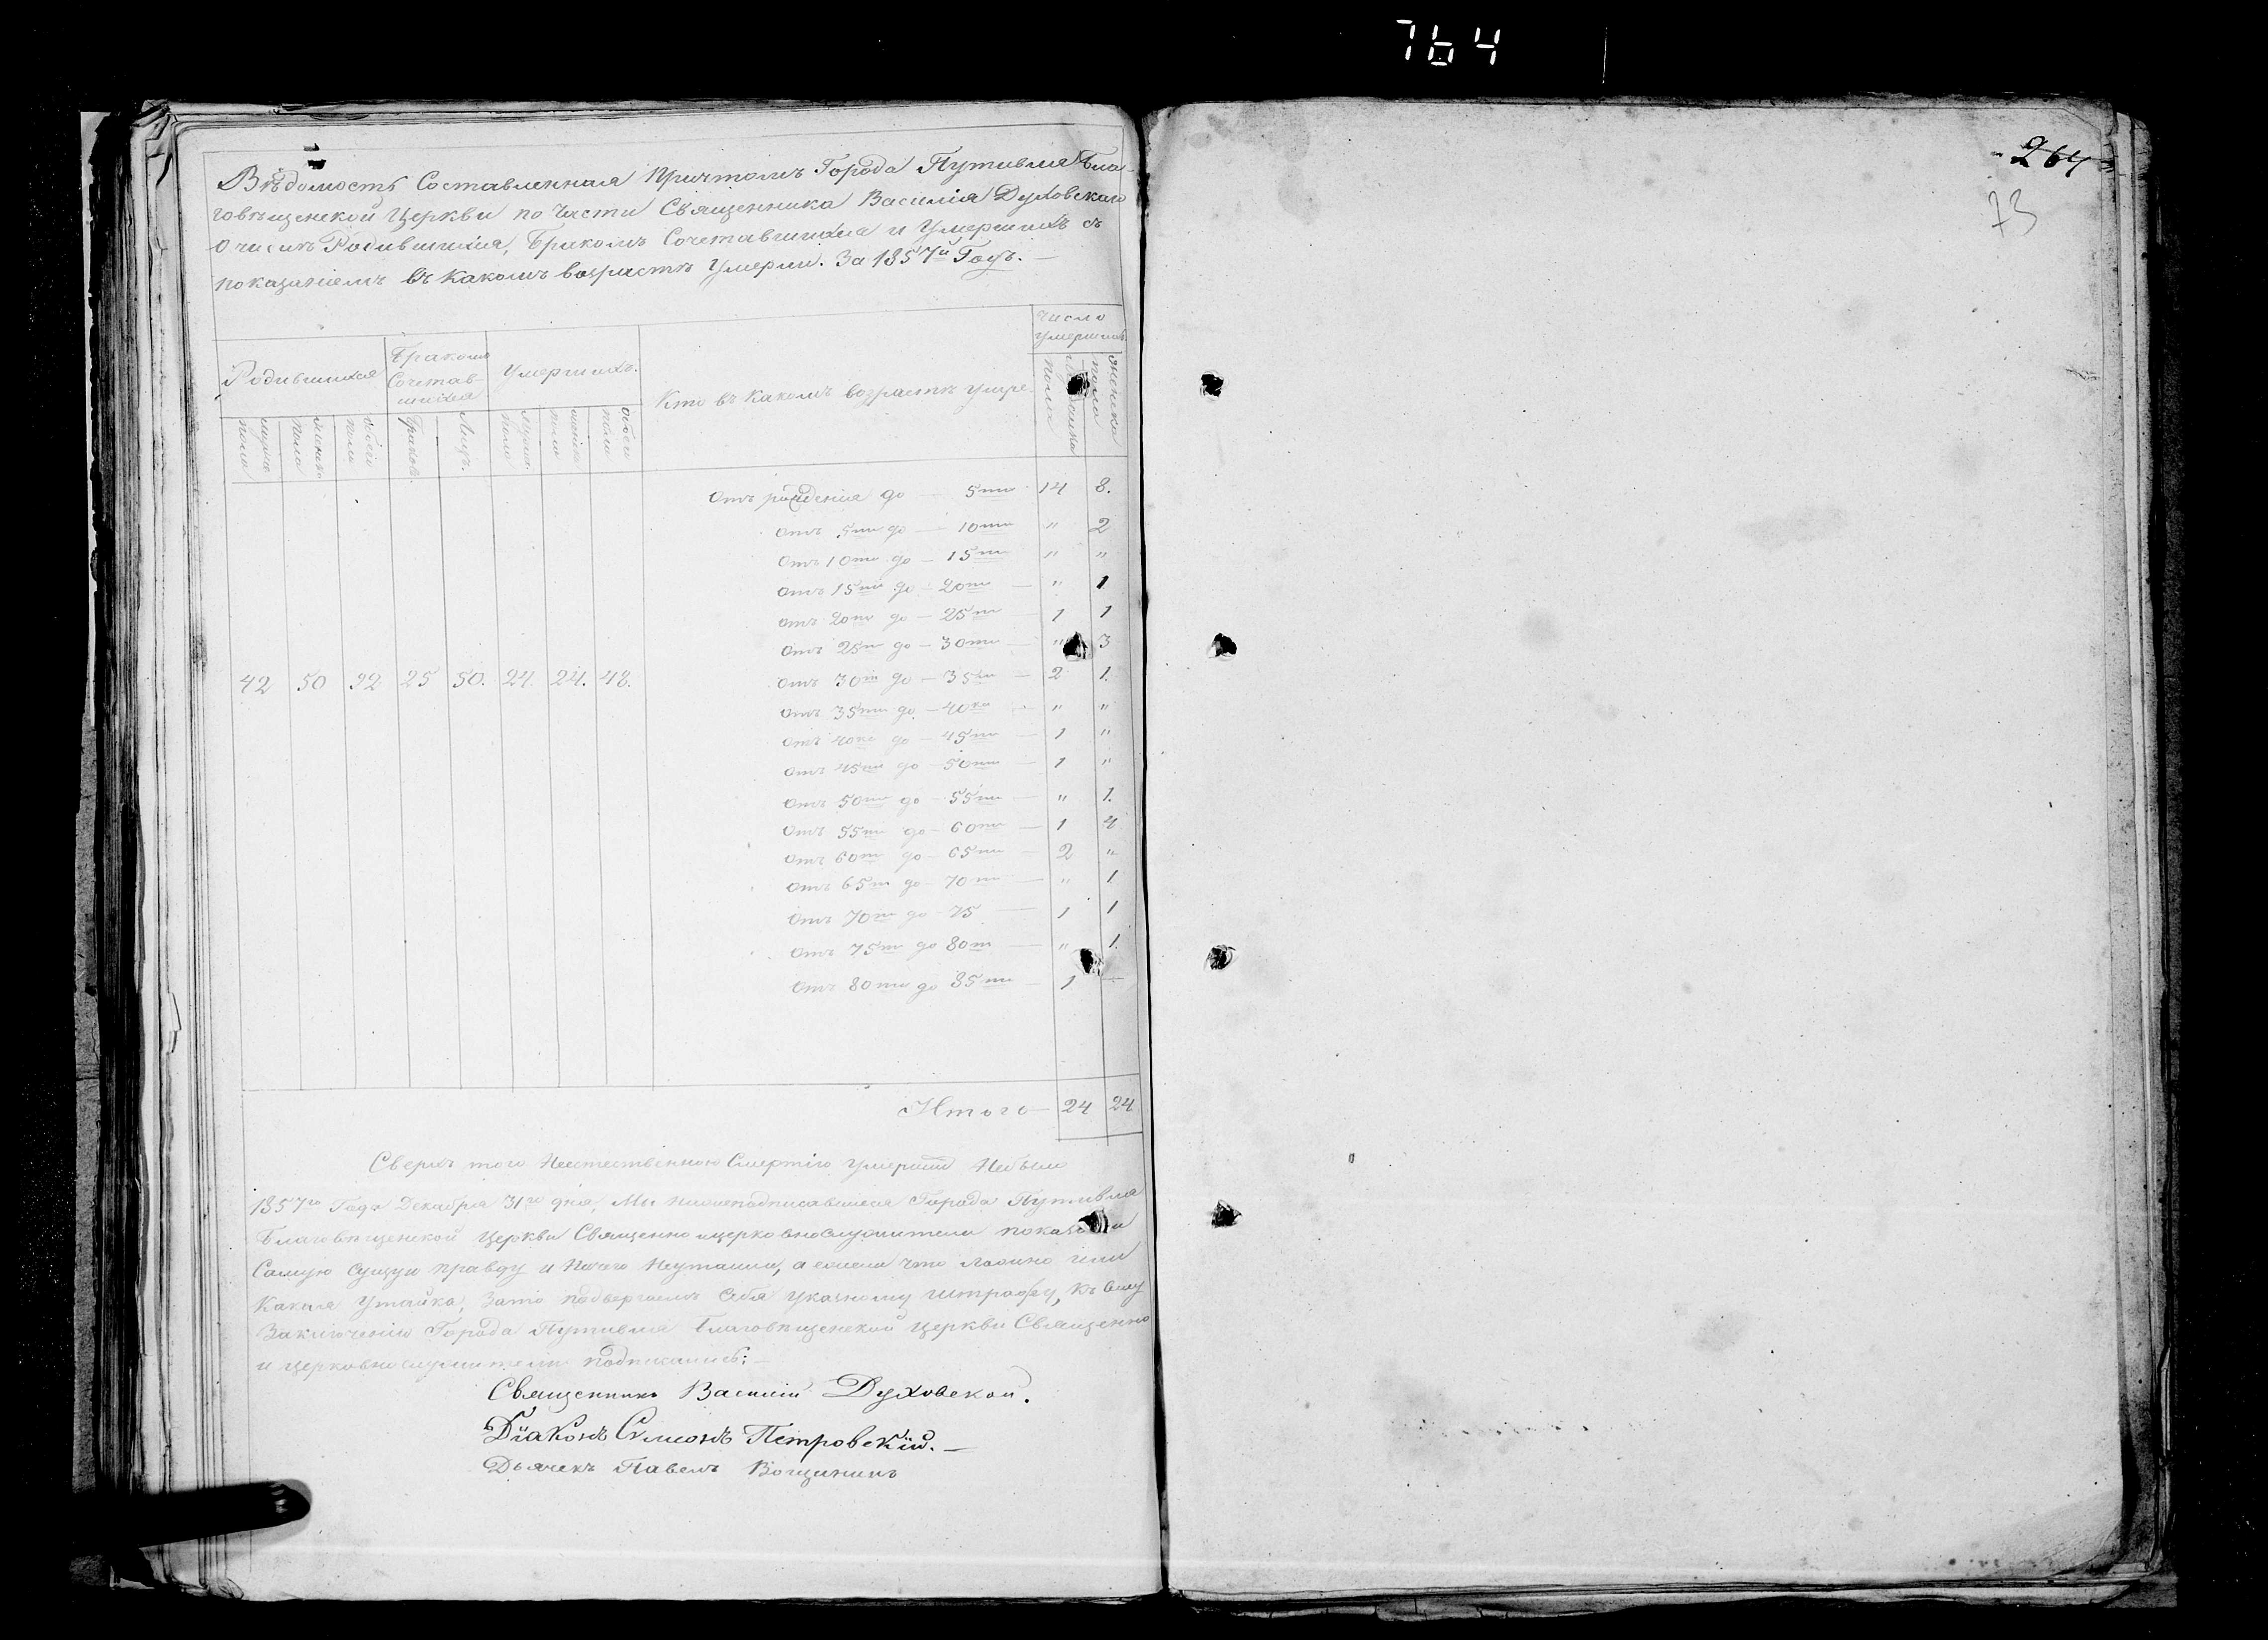 764
Вѣдомость Составленная Причтомъ Города Путивля Бла-
говѣщенской Церкви по Части Священника Василія Духовскаго
О числѣ Родившихся, Бракомъ Сочетавшихся и Умершихъ съ
показаніемъ въ Какомъ возрастѣ Умерли. За 1857й Годъ. —
Родившихся
Бракомъ Сочетав-шихся
Умершихъ.
Кто въ Какомъ возрастѣ умре
Число умершихъ
мужска пола
женска пола
обоего пола
Браковъ.
Лицъ.
мужск. пола
женска пола
обоего пола
пола
женска пола
Отъ рожденія до — 5ти 14 8.
Отъ 5ти до — 10ти " 2
Отъ 10ти до — 15ти " "
Отъ 15ти до — 20ти — " 1
Отъ 20ти до — 25ти — 1 1
Отъ 25ти до — 30ти — " 3
42 50 92 25 50. 24. 24. 48. Отъ 30ти до — 35ти — 2 1.
Отъ 35ти до — 40ка — " "
Отъ 40ка до — 45ти — 1 "
Отъ 45ти до — 50ти — 1 "
Отъ 50ти до — 55ти — " 1.
Отъ 55ти до — 60ти — 1 4
Отъ 60ти до — 65ти — 2 "
Отъ 65ти до — 70ти — " 1
Отъ 70ти до — 75 — 1 1
Отъ 75ти до 80ти — " 1.
Отъ 80ти до 85ти — 1 —
Итого — 24 24
Сверхъ того Неестественною Смертію умершихъ Небыло
1857го Года Декабря 31го дня, Мы нижеподписавшіеся Города Путивля
Благовѣщенской Церкви Священно и церковнослужители показали
Самую сущую правду и Ничего Неутаили, а ежели Что Ложно или
Какая Утайка, Зато подвергаемъ себя указному штрафу, Къ сему
Заключенію Города Путивля Благовѣщенской Церкви Священно
и церковнослужители подписались: —
Священникъ Василій Духовской.
Діаконъ Сѵмеонъ Петровскій. —
Дьячекъ Павелъ
264
73